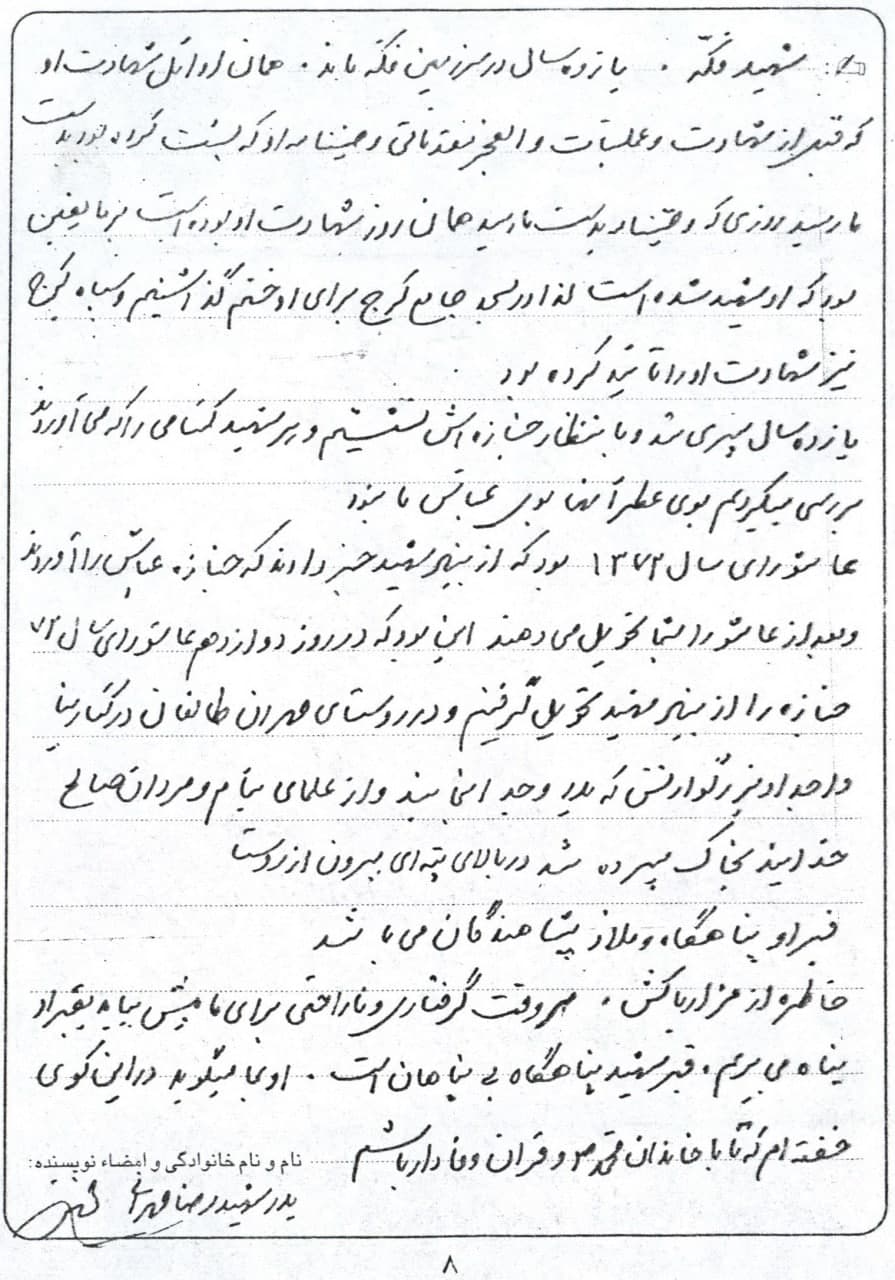 شهید فکّه . یازده سال در سرزمین فکه ماند . همان اوائل شهادت او
که قبل از شهادت و عملیات والفجر مقدماتی وصیتنامه او که پست کرده بود بدست
ما رسید روزی که وصیتنامه بدست ما رسید همان روز شهادت او بوده است بر ما یقین
بود که او شهید شده است لذا در مسجد جامع کرج برای او ختم گذاشتیم و سپاه کرج
نیز شهادت او را تائید کرده بود
یازده سال سپری شد و ما بانتظار جنازه اش نشستیم و هر شهید گمنامی را که می آوردند
بررسی میکردیم بوی عطر آنها بوی عباس ما نبود
عاشورای سال ۱۳۷۳ بود که از بنیاد شهید خبر دادند که جنازه عباس را آوردند
و بعد از عاشورا بشما تحویل می دهند این بود که در روز دوازدهم عاشورای سال ۷۳
جنازه را از بنیاد شهید تحویل گرفتیم و در روستای مهران طالقان در کنار
و اجداد بزرگوارش که پدر و جد اینجانبند و از علمای بنام و مردان صالح
خدایند بخاک سپرده شد در بالای تپه ای بیرون از روستا
قبر او پناهگاه و ملاذ پناهندگان می باشد
خاطره از مزار پاکش . هر وقت گرفتاری و ناراحتی برای ما پیش بیاید بقبر او
پناه می بریم . قبر شهید پناهگاه بی پناهان است . او بما میگوید در این کوی
خفته ام که تا با خاندان محمد ص و قران وفادار باشم
نام و نام خانوادگی و امضاء نویسنده:
پدر شهید رضا مهرانی
۸